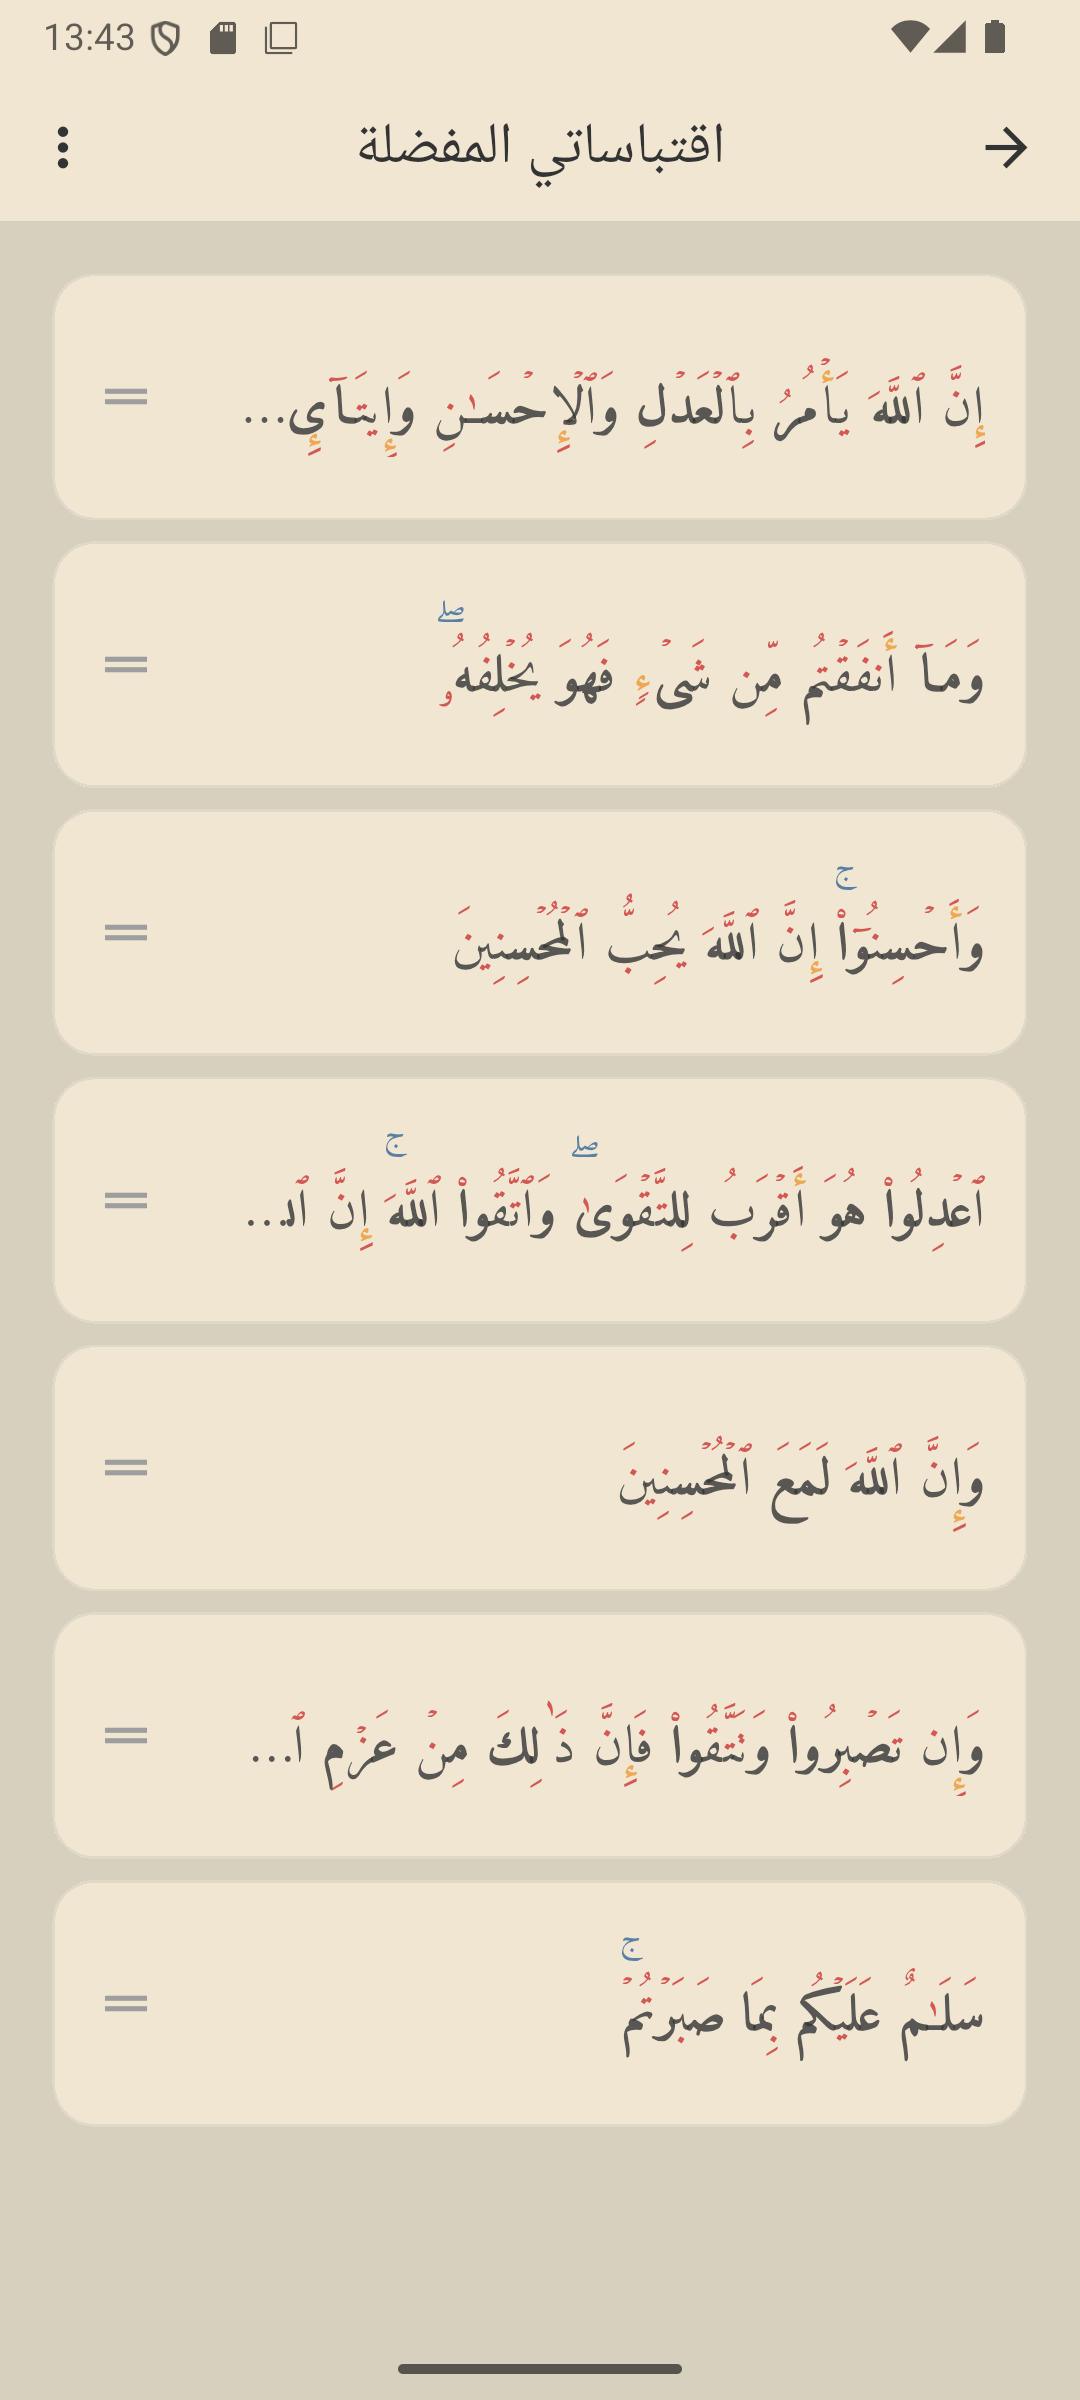 13:43
اقتباساتي المفضلة
إِنَّ ٱللَّهَ يَأۡمُرُ بِٱلۡعَدۡلِ وَٱلۡإِحۡسَـٰنِ وَإِيتَآىِٕ...
وَمَآ أَنفَقۡتُم مِّن شَیۡءࣲ فَهُوَ یُخۡلِفُهُۥۖ
وَأَحۡسِنُوۤا۟ۚ إِنَّ ٱللَّهَ یُحِبُّ ٱلۡمُحۡسِنِینَ
ٱعۡدِلُوا۟ هُوَ أَقۡرَبُ لِلتَّقۡوَىٰۖ وَٱتَّقُوا۟ ٱللَّهَۚ إِنَّ ٱلـ...
وَإِنَّ ٱللَّهَ لَمَعَ ٱلۡمُحۡسِنِینَ
وَإِن تَصۡبِرُوا۟ وَتَتَّقُوا۟ فَإِنَّ ذَ ٰ⁠لِكَ مِنۡ عَزۡمِ ٱ...
سَلَـٰمٌ عَلَیۡكُم بِمَا صَبَرۡتُمۡۚ